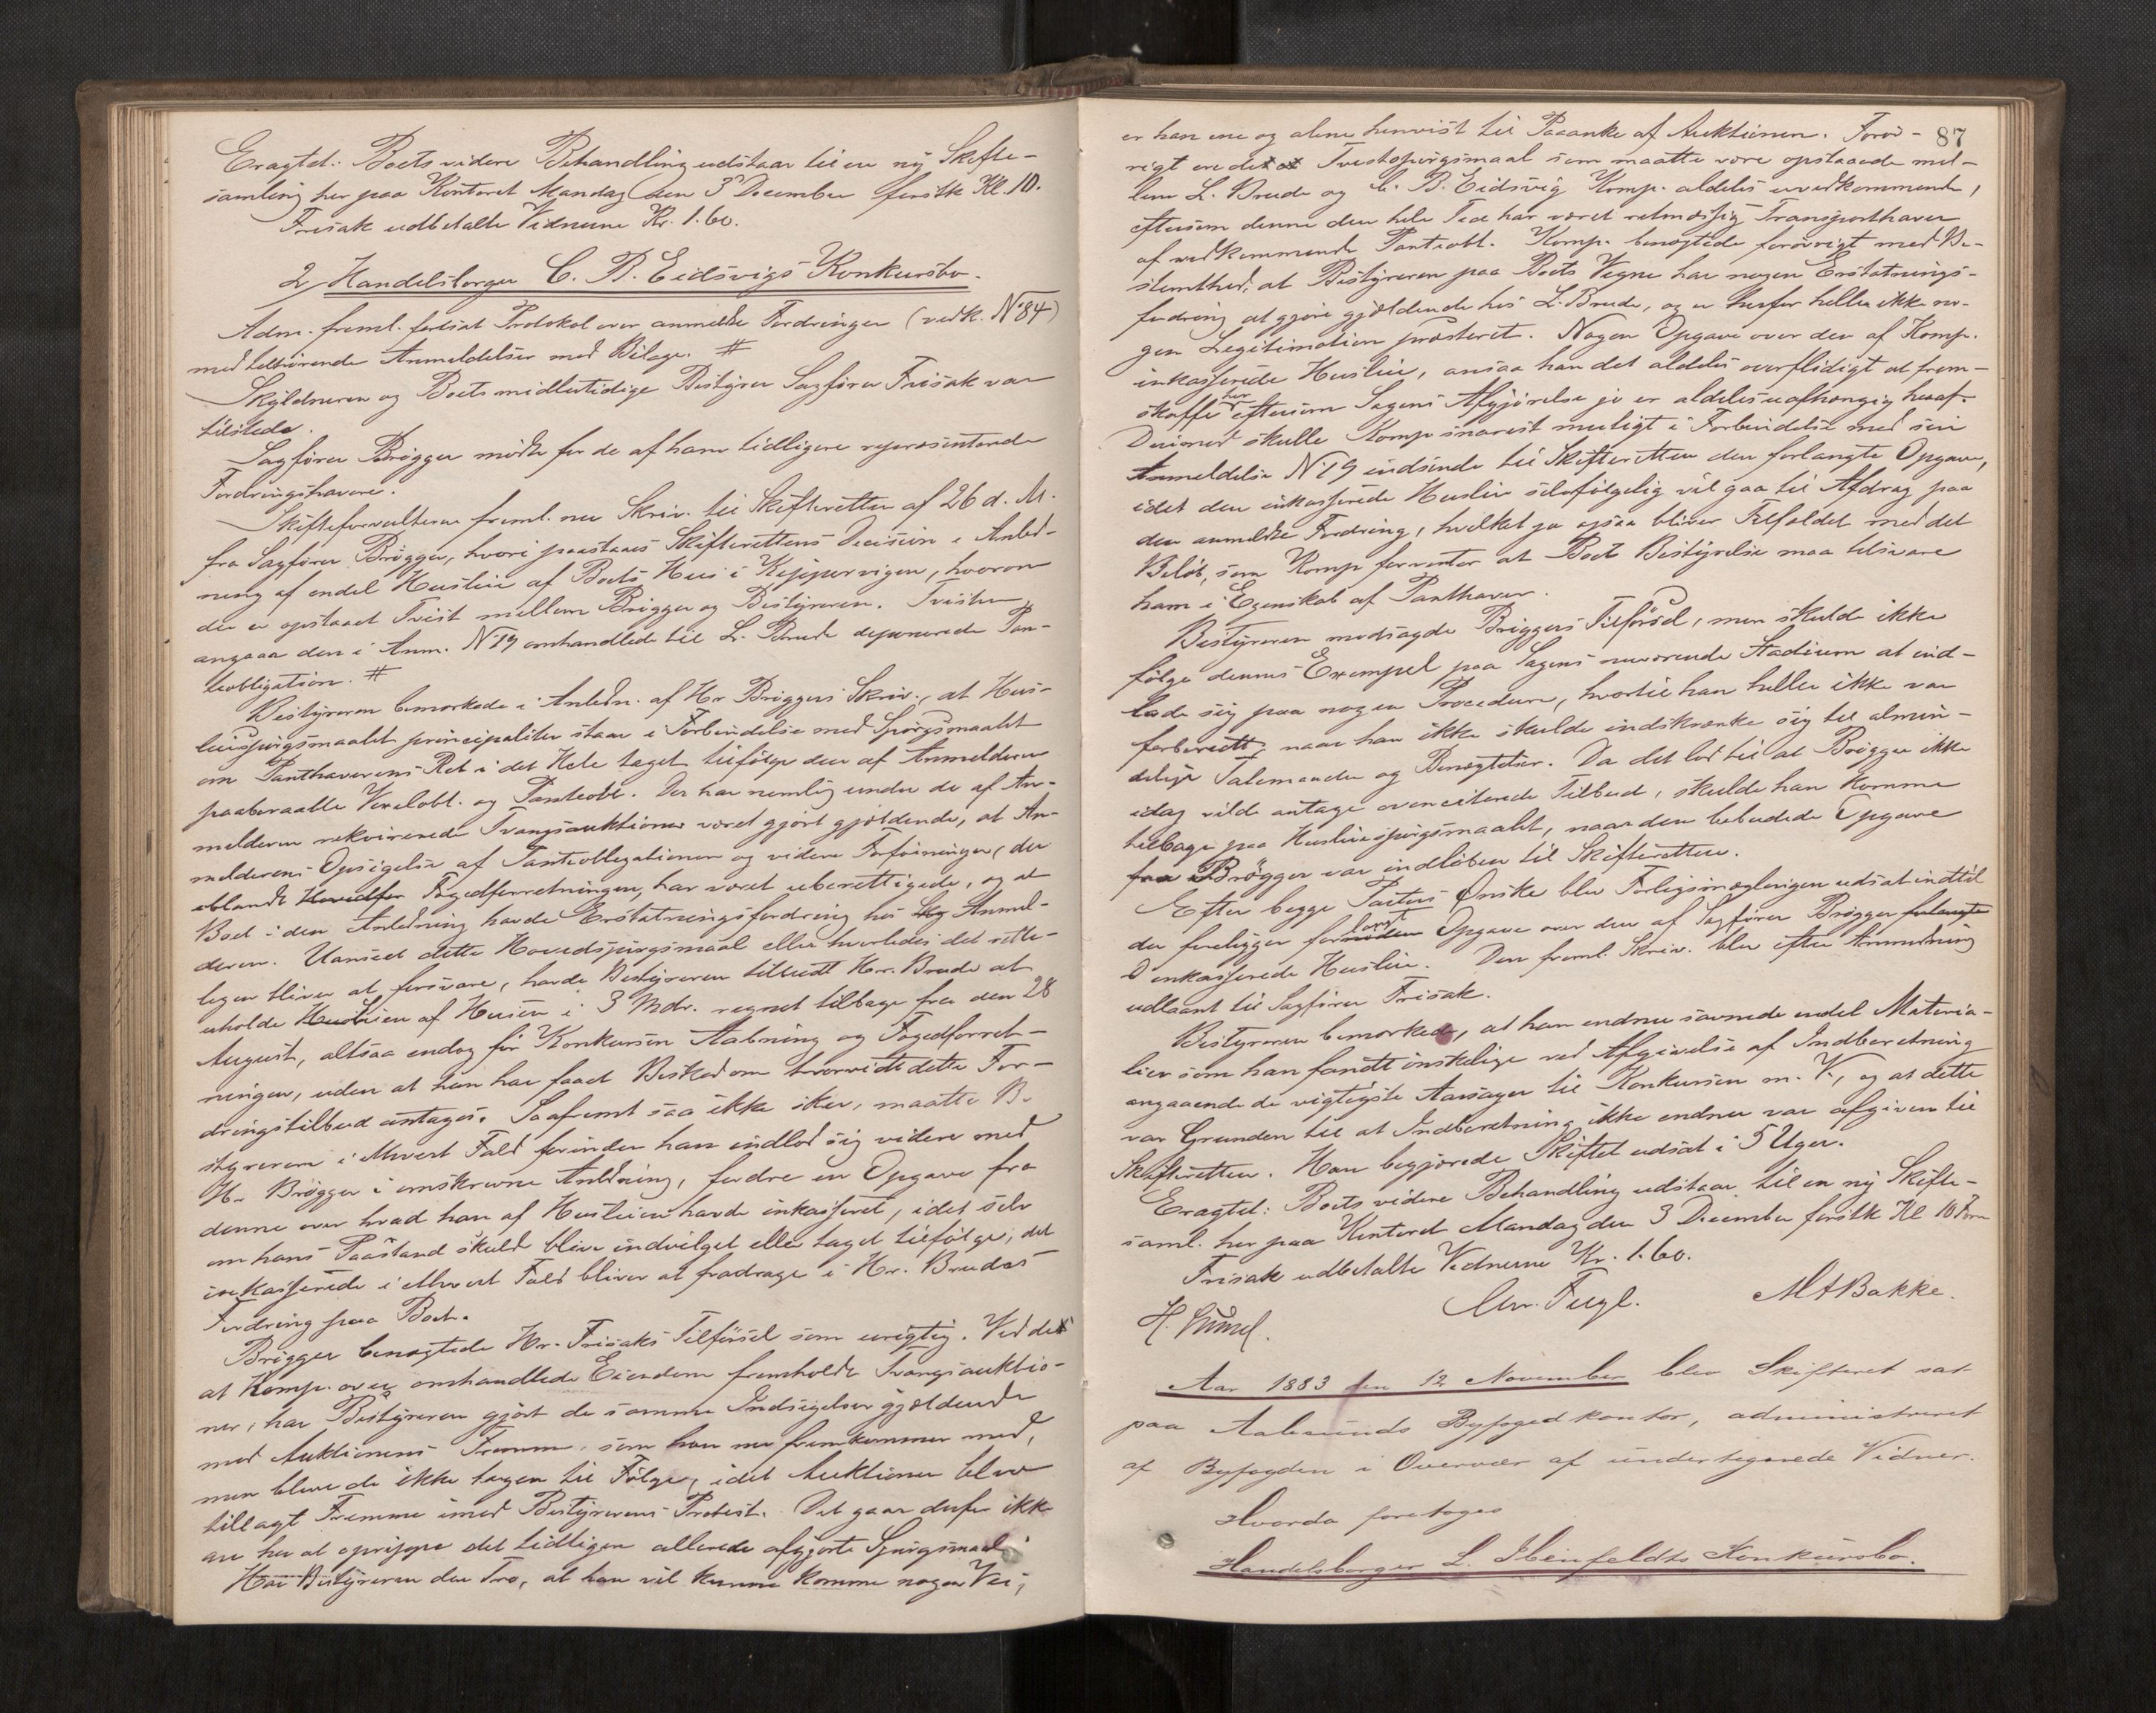 Eragtet: Boets videre Behandling udstaar til en ny Skifte-
samling her paa Kontoret Mandag den 3' December førstk. Kl. 10.
Frisak udbetalte Vidnerne Kr. 1.60.
2/ Handelsborger C. B. Eidsvigs Konkursbo.
Adm. freml. fortsat Protokol over anmeldte Fordringer (vedk. N° 84)
med tilhørende Anmeldelser med Bilage. #
Skyldneren og Boets midlertidige Bestyrer Sagfører Frisak var
tilstede.
Sagfører Brøgger mødte for de af ham tidligere repræsenterede
Fordringshavere.
Skifteforvalteren freml. nu Skriv. til Skifteretten af 26 d. M.
fra Sagfører Brøgger, hvori paastaaes Skifterettens Decision i Anled-
ning af endel Husleie af Boets Hus i Kippervigen, hvorom
der er opstaaet Tvist mellem Brøgger og Bestyreren. Tvisten
angaar den i Anm. N° 19 omhandlede til L. Brude deponerede Pan-
teobligation. #
Bestyreren bemærkede i Anledn. af Hr Brøggers Skriv., at Hus-
leiespørgsmaalet principaliter staar i Forbindelse med Spørgsmaalet
om Panthaverens Ret i det Hele taget tilfølge den af Anmelderen
paaberaabte Vexelobl. og Panteobl. Der har nemlig under de af An-
melderen rekvirerede Tvangsauktioner været gjort gjældende, at An-
melderens Opsigelse af Panteobligationen og videre Forføininger, der
iblandt Fogedforretningen, har været uberettigede, og at
Boet i den Anledning havde Erstatningsfordring hos Anmel-
deren. Uanseet dette Hovedspørgsmaal eller hvorledes det rette-
ligen bliver at forsvare, havde Bestyreren tilbudt Hr. Brude at
uholde Husleien af Husene i 3 Mdr. regnet tilbage fra den 28
August, altsaa endog før Konkursens Aabning og Fogedforret-
ningen, uden at han har faaet Besked om hvorvidt dette For-
dringstilbud antages. Saafremt saa ikke sker, maatte Be-
styreren i ethvert Fald forinden han indlod sig videre med
Hr. Brøgger i omskrevne Anledning, fordre en Opgave fra
denne over hvad han af Husleien havde inkasseret, idet selv
om hans Paastand skulde blive indvilget eller taget tilfølge, det
inkasserede i ethvert Fald bliver at fradrage i Hr. Brudes
Fordring paa Boet.
Brøgger benægtede Hr. Frisaks Tilførsel som urigtig. Ved de
at Komp. over omhandlede Eiendom fremholdte Tvangsauktio-
ner, har Bestyreren gjort de samme Indsigelser gjældende
mod Auktionens Fremme, som han nu fremkommer med,
men bleve de ikke tagen til Følge, idet Auktionen blev
tillagt Fremme imod Bestyrerens Protest. Det gaar derfor ikke
an her at oprippe det tidligere allerede afgjorte Spørgsmaal.
Har Bestyreren den Tro, at han vil kunne komme nogen Vei,
87
er han ene og alene henvist til Paaanke af Auktionen. Forøv-
rigt er det Tvistspørgsmaal som maatte være opstaaede mel-
lem L. Brude og C. B. Eidsvig Komp. aldeles uvedkommende,
eftersom denne den hele Tid har været retmæssig Transporthaver
af vedkommende Panteobl. Komp. benægtede forøvrigt med Be-
stemthed, at Bestyreren paa Boets Vegne har nogen Erstatnings-
fordring at gjøre gjældende hos L. Brude, og er herfor heller ikke no-
gen Legitimation præsteret. Nogen Opgave over den af Komp.
inkasserede Husleie, ansaa han det aldeles overflødigt at frem-
skaffe her eftersom Sagens Afgjørelse jo er aldeles uafhængig heraf.
Derimod skulde Komp snarest muligt i Forbindelse med sin
Anmeldelse N° 19 indsende til Skifteretten den forlangte Opgave,
idet den inkasserede Husleie selvfølgelig vil gaa til Afdrag paa
den anmeldte Fordring, hvilket jo ogsaa bliver Tilfældet med det
Beløb, som Komp forventer at Boets Bestyrelse maa tilsvare
ham i Egenskab af Panthaver.
Bestyreren modsagde Brøggers Tilførsel, men skulde ikke
følge dennes Exempel paa Sagens nuværende Stadium at ind-
lade sig paa nogen Procedure, hvortil han heller ikke var
forberedt, naar han ikke skulde indskrænke sig til almin-
delige Talemaader og Benægtelser. Da det lod til at Brøgger ikke
idag vilde antage ovenciterede Tilbud, skulde han komme
tilbage paa Husleiespørgsmaalet, naar den bebudede Opgave
fra Brøgger var indløben til Skifteretten.
Efter begge Parters Ønske blev Forligsmæglingen udsat indtil
der foreligger forlangt Opgave over den af Sagfører Brøgger
inkasserede Husleie. Den freml. Skriv. blev efter Anmodning
udlaant til Sagfører Frisak.
Bestyreren bemærkede, at han endnu savnede endel Materia-
lier som han fandt ønskelige ved Afgivelse af Indberetning
angaaende de vigtigste Aarsager til Konkursen m. V., og at dette
var Grunden til at Indberetning ikke endnu var afgiven til
Skifteretten. Han begjærede Skiftet udsat i 5 Uger.
Eragtet: Boets videre Behandling udstaar til en ny Skifte-
saml. her paa Kontoret Mandag den 3 December førstk Kl 10 Form
Frisak udbetalte Vidnerne Kr. 1.60.
Chr. Fugl. M A Bakke.
Aar 1883 den 12 November blev Skifteret sat
paa Aalesunds Byfogedkontor, administreret
af Byfogden i Overvær af undertegnede Vidner.
Hvorda foretoges
Handelsborger L. Ibenfeldts Konkursbo.